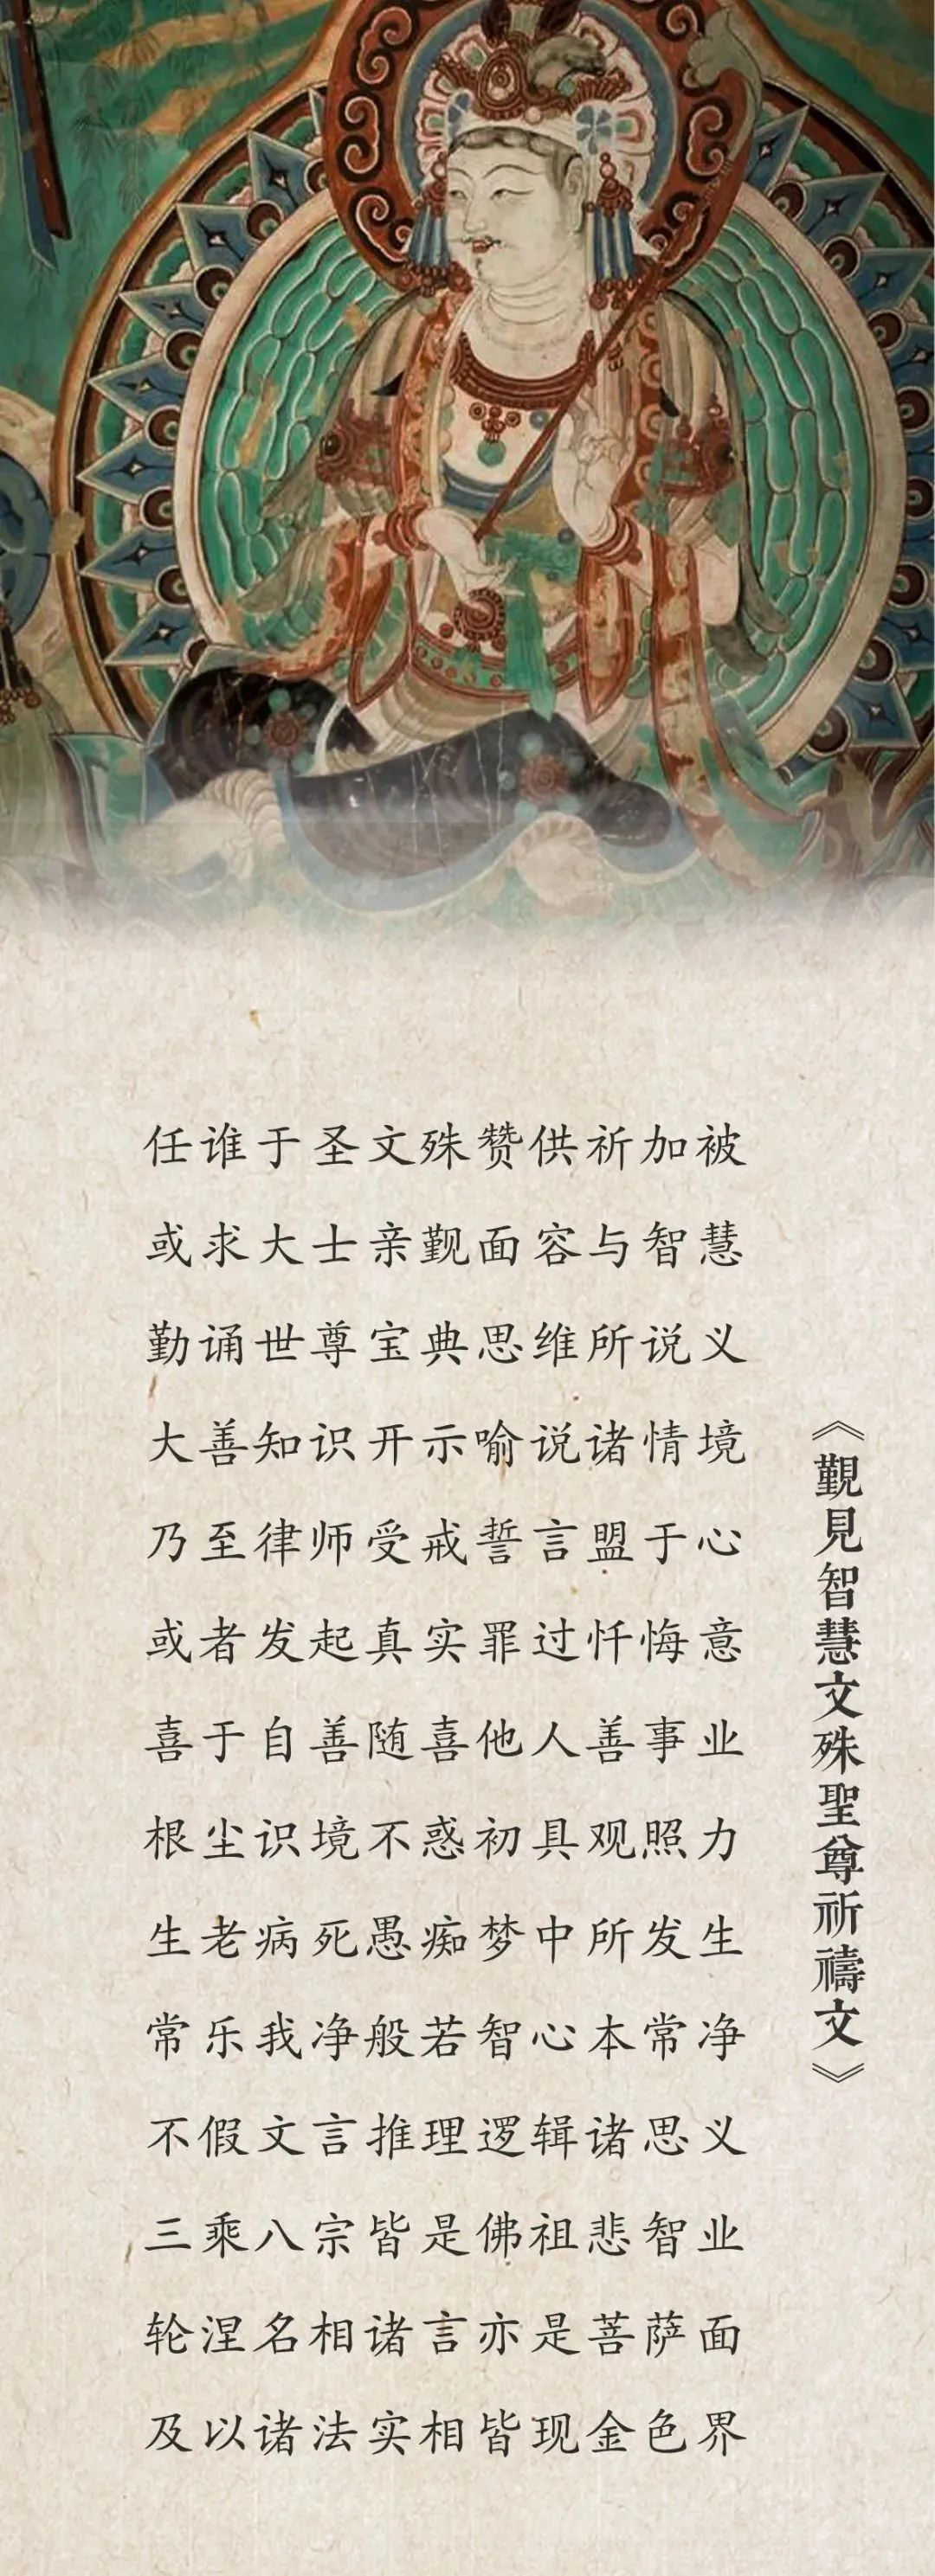 《觐見智慧文殊聖尊祈禱文》
任谁于圣文殊赞供祈加被
或求大士亲觐面容与智慧
勤诵世尊宝典思维所说义
大善知识开示喻说诸情境
乃至律师受戒誓言盟于心
或者发起真实罪过忏悔意
喜于自善随喜他人善事业
根尘识境不惑初具观照力
生老病死愚痴梦中所发生
常乐我净般若智心本常净
不假文言推理逻辑诸思义
三乘八宗皆是佛祖悲智业
轮涅名相诸言亦是菩萨面
及以诸法实相皆现金色界